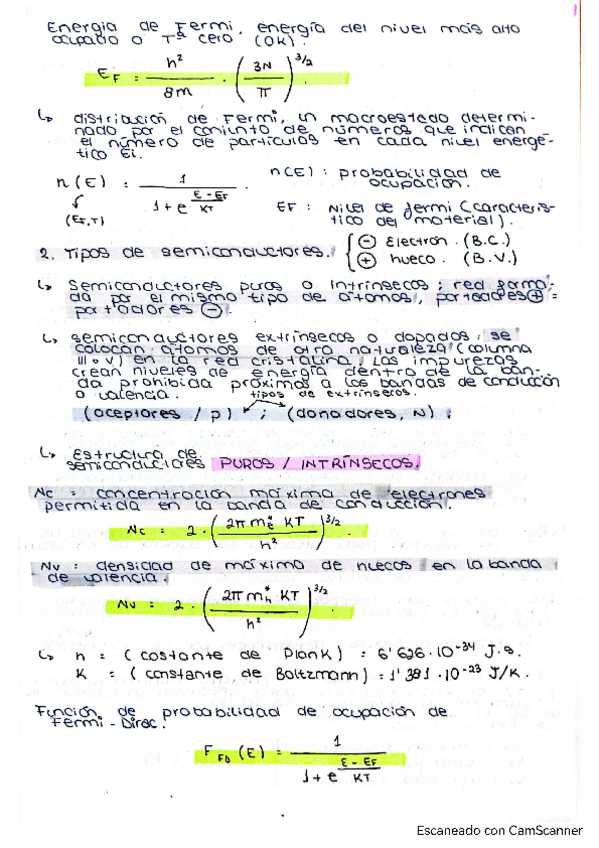 Energía de Fermi, energía del nivel más alto
ocupado a Tª cero (0K).
E_F = h²/8m · (3N/π)^3/2
↳ distribución de Fermi, un macroestado determi-
nado por el conjunto de números que indican
el número de partículas en cada nivel energé-
tico Ei.
n(E) = 1/(1+e^((E-EF)/KT))
n(E): probabilidad de
ocupación.
(EF,T)
EF: Nivel de fermi (caracterís-
tico del material).
2. Tipos de semiconductores. { ⊖ Electrón. (B.C.)
⊕ hueco. (B.V.)
↳ Semiconductores puros o intrínsecos: red forma-
da por el mismo tipo de átomos, portadores ⊕ =
portadores ⊖.
↳ semiconductores extrínsecos o dopados: se
colocan átomos de otra naturaleza (columna
III o V) en la red cristalina, las impurezas
crean niveles de energía dentro de la ban-
da prohibida próximos a las bandas de conducción
o valencia. tipos de extrínsecos.
(aceptores / p) ; (donadores, N) :
↳ Estructura de
semiconductores PUROS / INTRÍNSECOS.
Nc = concentración máxima de electrones
permitida en la banda de conducción.
Nc = 2·(2π m*e KT/h²)^3/2
Nv : densidad de máxima de huecos en la banda
de valencia.
Nv = 2·(2π m*h KT/h²)^3/2
↳ h = (costante de Plank) = 6'626·10⁻³⁴ J·s.
K = (constante de Boltzmann) = 1'381·10⁻²³ J/K.
Función de probabilidad de ocupación de
Fermi-Dirac.
F_FD (E) = 1/(1+e^((E-EF)/KT))
Escaneado con CamScanner